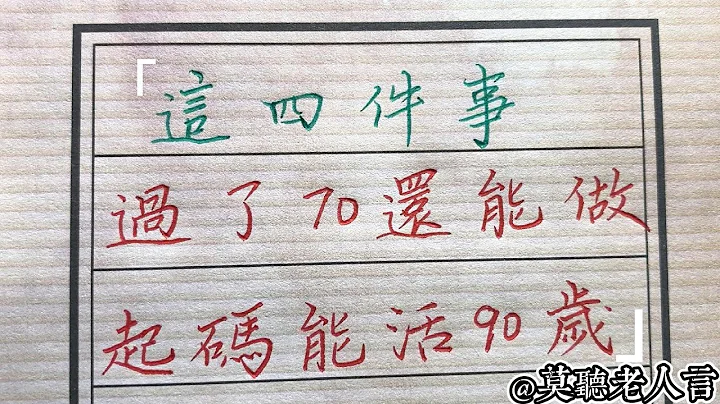 「這四件事
過了70還能做
起碼能活90歲」
@莫聽老人言